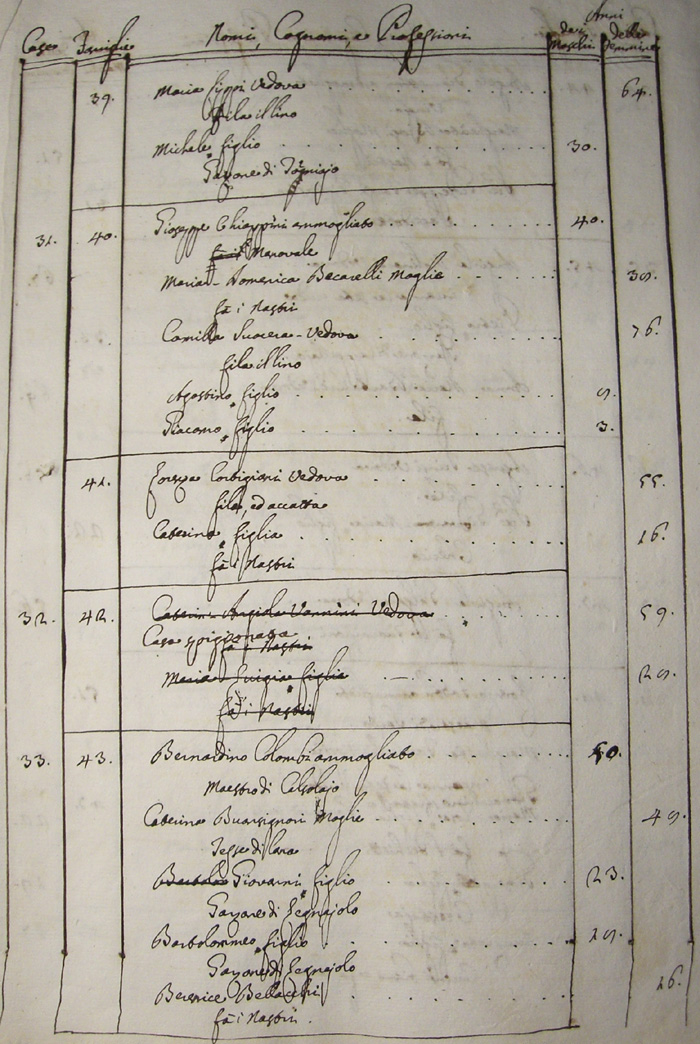 Case Famiglie Nomi, Cognomi, e Professioni Anni dei Maschi delle Femmine
39. Maria Vedova 64.
fila il lino
Michele figlio 30.
Garzone di
31. 40. Giuseppe Chiappini ammogliato 40.
Manovale
Maria Domenica Becarelli Moglie 39.
fà i Nastri
Camilla Suocera Vedova 76.
fila il lino
Agostino figlio 9.
Giacomo figlio 3.
41. Vedova 55.
fila, ed accatta
Caterina figlia 16.
fà i Nastri
32. 42. Caterina Angiola Vannini Vedova 59.
Casa spigionata
fà i Nastri
Maria Luigia figlia 29.
fà i Nastri
33. 43. Bernardino Colombi ammogliato 50.
Maestro di Calzolajo
Caterina Buonsignori Moglie 49.
Tesse di lana
Bartolo Giovanni figlio 23.
Garzone di Legnajolo
Bartolommeo figlio 19.
Garzone di Legnajolo
Berenice Bellacchi 26.
fà i Nastri.